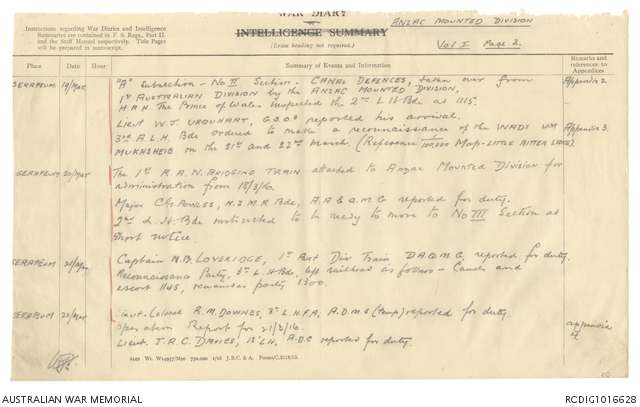 WAR DIARY
INTELLIGENCE SUMMARY
(Erase heading not required.)
Instructions regarding War Diaries and Intelligence
Summaries are contained in F. S. Regs., Part II.
and the Staff Manual respectively. Title Pages
will be prepared in manuscript.
ANZAC MOUNTED DIVISION
Vol I Page 2.
Place Date Hour Summary of Events and Information Remarks and references to Appendices
SERAPEUM 19/Mar "A" Subsection - No II Section - CANAL DEFENCES, taken over from Appendix 2.
1st AUSTRALIAN DIVISION by the ANZAC MOUNTED DIVISION.
H.R.H. The Prince of Wales inspected the 2nd L H Bde at 1115.
Lieut W.J. URQUHART, G.S.O.3 reported his arrival.
3rd A L H. Bde ordered to make a reconnaissance of the WADI UM Appendix 3.
MUKHSHEIB on the 21st and 22nd March (Reference 1/100,000 Map - LITTLE BITTER LAKE).
SERAPEUM 20/Mar The 1st R.A.N. BRIDGING TRAIN attached to Anzac Mounted Division for
administration from 18/3/16.
Major C.G. POWLES, N.Z.M.R. Bde, A A & Q M G reported for duty.
2nd L H Bde instructed to be ready to move to No III Section at
short notice.
SERAPEUM 21/Mar Captain N.B. LOVERIDGE, 1st Aust Div Train D.A.Q.M.G. reported for duty.
Reconnaissance Party, 3rd L H Bde, left railhead as follows - Camels and
escort 1145, remainder party 1300.
SERAPEUM 22/Mar Lieut-Colonel R.M. DOWNES, 3rd L.H.F.A, A.D.M.S (temp) reported for duty
Operation Report for 21/3/16. appendix
Lieut. J.A.C. DAVIES, LH, A.D.C reported for duty.
2449 Wt. W14957/M90 750,000 1/16 J.B.C. & A. Forms/C.2118/12.
AUSTRALIAN WAR MEMORIAL
RCDIG1016628